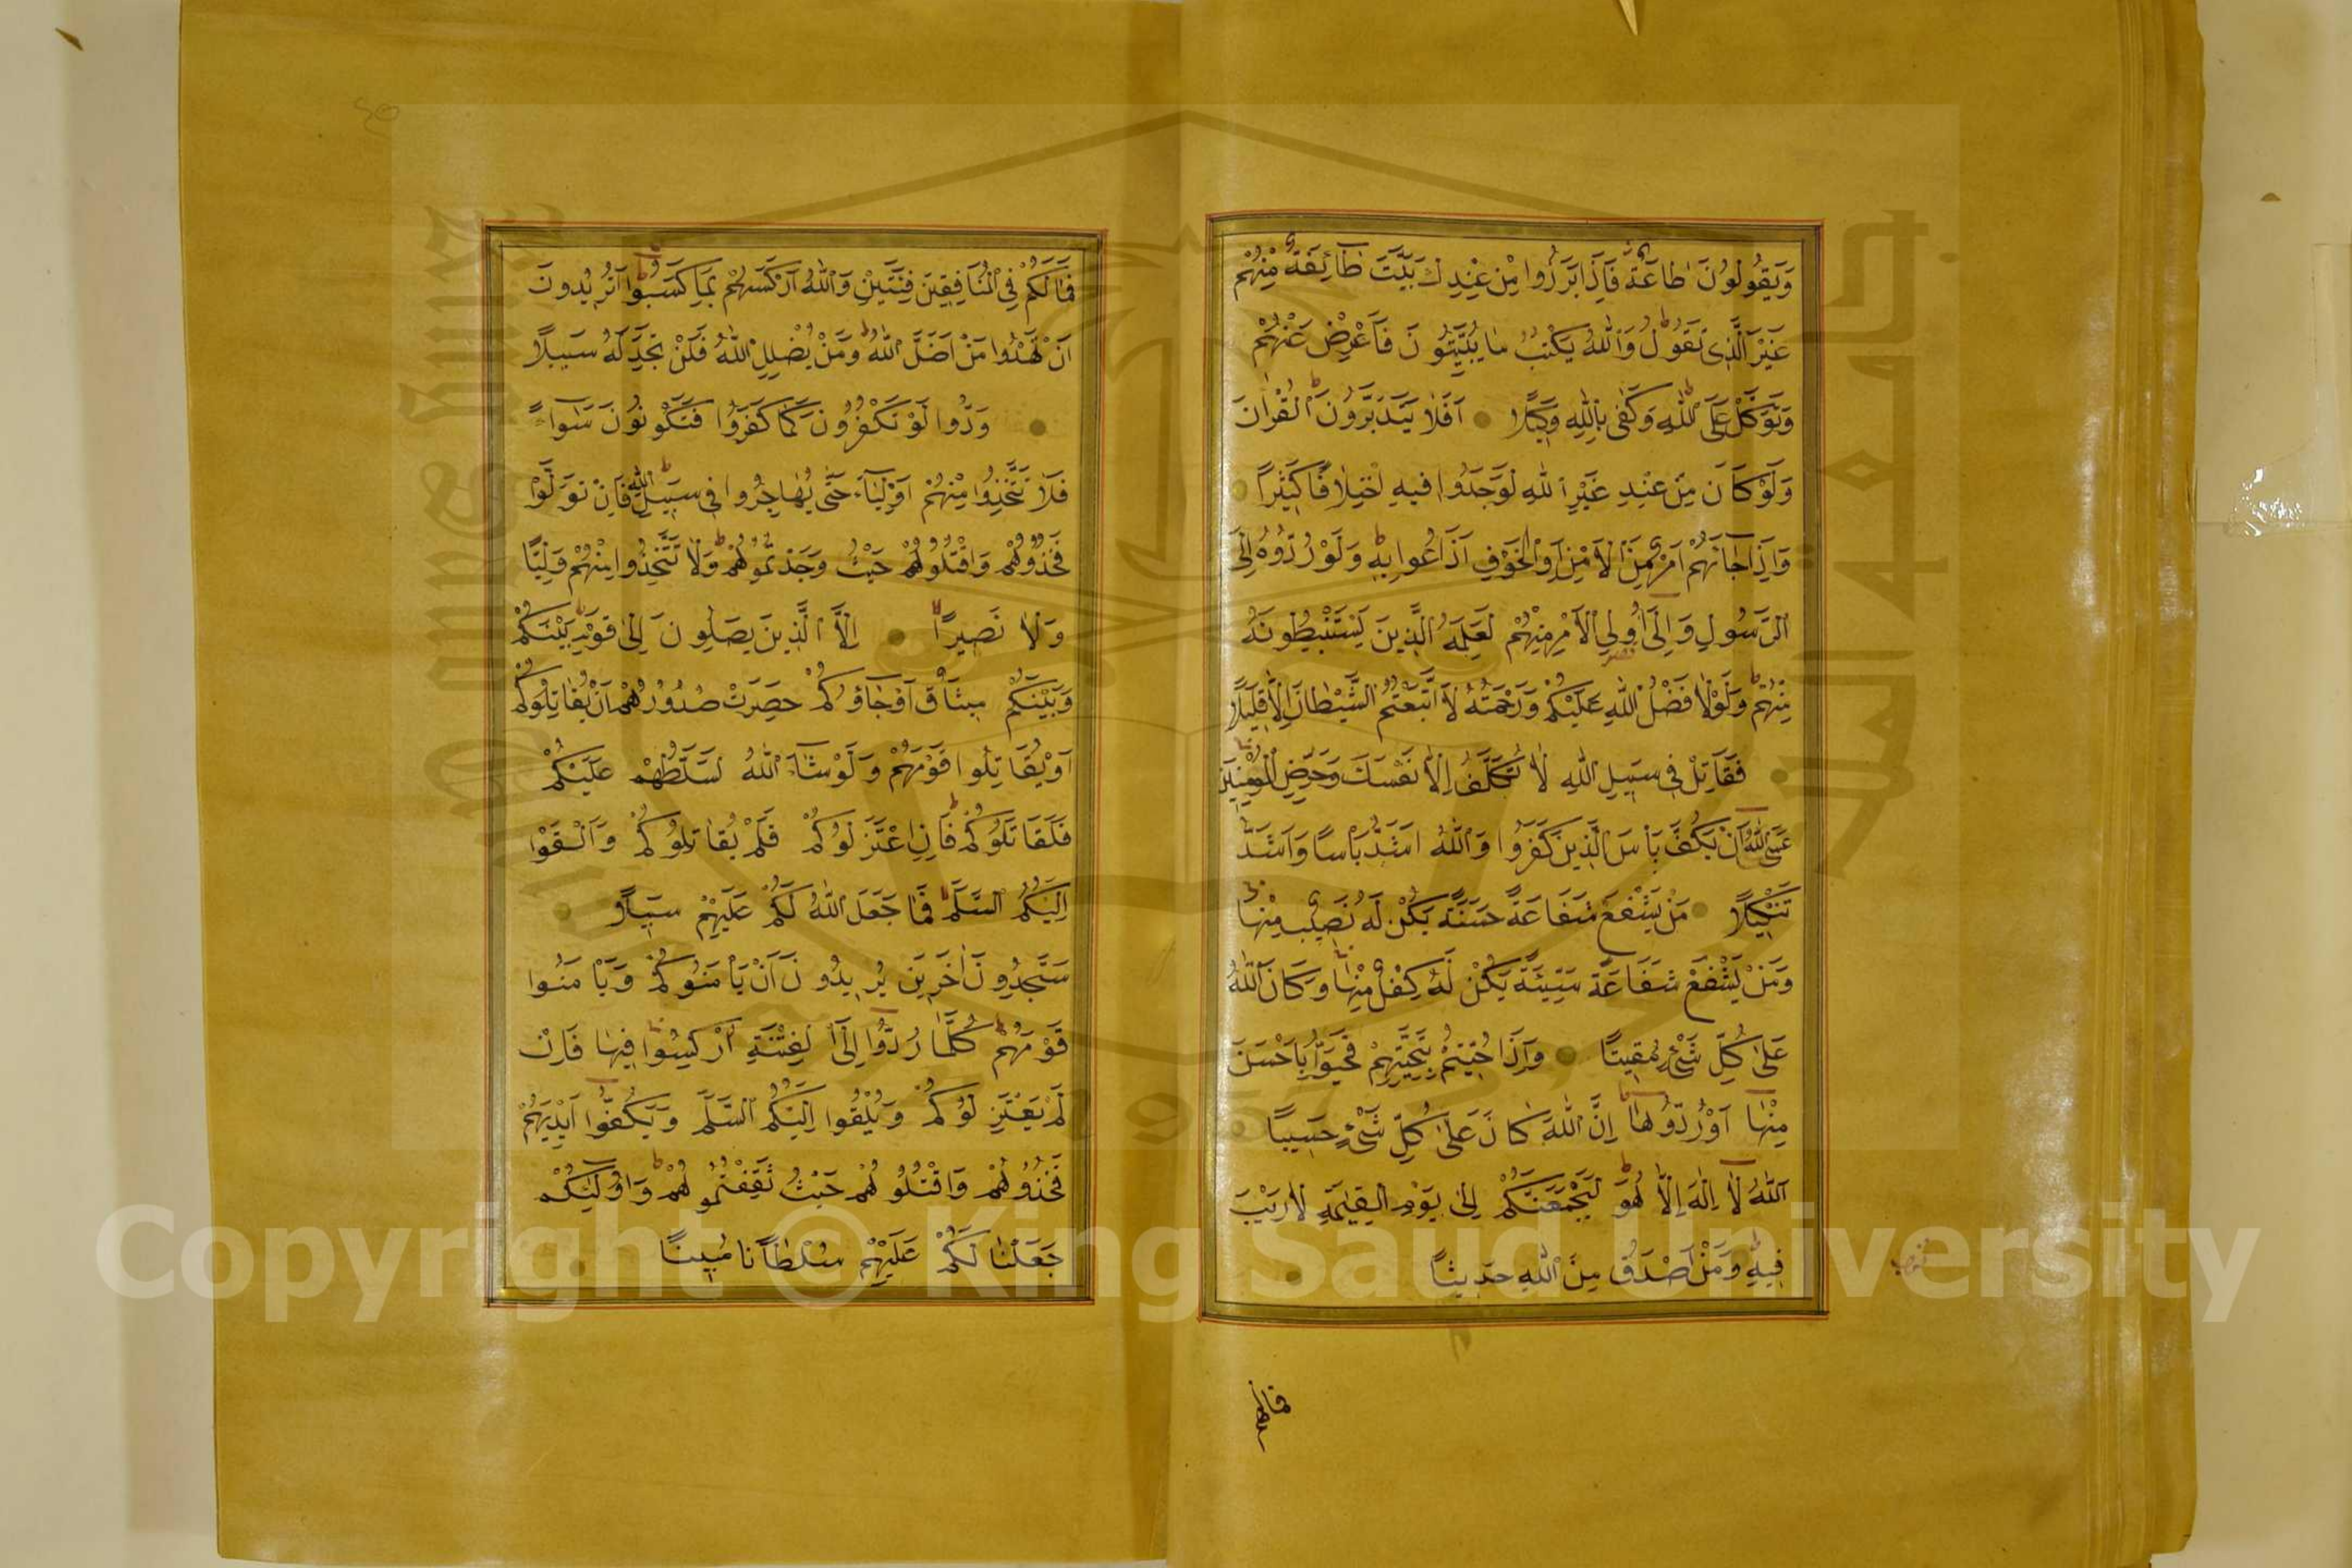 وَيَقُولُونَ طَاعَةٌ فَاِذَا بَرَزُوا مِنْ عِنْدِكَ بَيَّتَ طَائِفَةٌ مِنْهُمْ
غَيْرَ الَّذِى تَقُولُ وَاللّٰهُ يَكْتُبُ مَا يُبَيِّتُونَ فَاَعْرِضْ عَنْهُمْ
وَتَوَكَّلْ عَلَى اللّٰهِ وَكَفٰى بِاللّٰهِ وَكِيلًا اَفَلَا يَتَدَبَّرُونَ الْقُرْاٰنَ
وَلَوْ كَانَ مِنْ عِنْدِ غَيْرِ اللّٰهِ لَوَجَدُوا فِيهِ اخْتِلَافًا كَثِيرًا
وَاِذَا جَاءَهُمْ اَمْرٌ مِنَ الْاَمْنِ اَوِ الْخَوْفِ اَذَاعُوا بِهِ وَلَوْ رُدُّوهُ اِلَى
الرَّسُولِ وَاِلٰى اُولِى الْاَمْرِ مِنْهُمْ لَعَلِمَهُ الَّذِينَ يَسْتَنْبِطُونَهُ
مِنْهُمْ وَلَوْلَا فَضْلُ اللّٰهِ عَلَيْكُمْ وَرَحْمَتُهُ لَاتَّبَعْتُمُ الشَّيْطَانَ اِلَّا قَلِيلًا
فَقَاتِلْ فِى سَبِيلِ اللّٰهِ لَا تُكَلَّفُ اِلَّا نَفْسَكَ وَحَرِّضِ الْمُؤْمِنِينَ
عَسَى اللّٰهُ اَنْ يَكُفَّ بَاْسَ الَّذِينَ كَفَرُوا وَاللّٰهُ اَشَدُّ بَاْسًا وَاَشَدُّ
تَنْكِيلًا مَنْ يَشْفَعْ شَفَاعَةً حَسَنَةً يَكُنْ لَهُ نَصِيبٌ مِنْهَا
وَمَنْ يَشْفَعْ شَفَاعَةً سَيِّئَةً يَكُنْ لَهُ كِفْلٌ مِنْهَا وَكَانَ اللّٰهُ
عَلٰى كُلِّ شَىْءٍ مُقِيتًا وَاِذَا حُيِّيتُمْ بِتَحِيَّةٍ فَحَيُّوا بِاَحْسَنَ
مِنْهَا اَوْ رُدُّوهَا اِنَّ اللّٰهَ كَانَ عَلٰى كُلِّ شَىْءٍ حَسِيبًا
اَللّٰهُ لَا اِلٰهَ اِلَّا هُوَ لَيَجْمَعَنَّكُمْ اِلٰى يَوْمِ الْقِيٰمَةِ لَا رَيْبَ
فِيهِ وَمَنْ اَصْدَقُ مِنَ اللّٰهِ حَدِيثًا
فمالكم
فَمَا لَكُمْ فِى الْمُنَافِقِينَ فِئَتَيْنِ وَاللّٰهُ اَرْكَسَهُمْ بِمَا كَسَبُوا اَتُرِيدُونَ
اَنْ تَهْدُوا مَنْ اَضَلَّ اللّٰهُ وَمَنْ يُضْلِلِ اللّٰهُ فَلَنْ تَجِدَ لَهُ سَبِيلًا
وَدُّوا لَوْ تَكْفُرُونَ كَمَا كَفَرُوا فَتَكُونُونَ سَوَاءً
فَلَا تَتَّخِذُوا مِنْهُمْ اَوْلِيَاءَ حَتّٰى يُهَاجِرُوا فِى سَبِيلِ اللّٰهِ فَاِنْ تَوَلَّوْا
فَخُذُوهُمْ وَاقْتُلُوهُمْ حَيْثُ وَجَدْتُمُوهُمْ وَلَا تَتَّخِذُوا مِنْهُمْ وَلِيًّا
وَلَا نَصِيرًا اِلَّا الَّذِينَ يَصِلُونَ اِلٰى قَوْمٍ بَيْنَكُمْ
وَبَيْنَهُمْ مِيثَاقٌ اَوْ جَاؤُكُمْ حَصِرَتْ صُدُورُهُمْ اَنْ يُقَاتِلُوكُمْ
اَوْ يُقَاتِلُوا قَوْمَهُمْ وَلَوْ شَاءَ اللّٰهُ لَسَلَّطَهُمْ عَلَيْكُمْ
فَلَقَاتَلُوكُمْ فَاِنِ اعْتَزَلُوكُمْ فَلَمْ يُقَاتِلُوكُمْ وَاَلْقَوْا
اِلَيْكُمُ السَّلَمَ فَمَا جَعَلَ اللّٰهُ لَكُمْ عَلَيْهِمْ سَبِيلًا
سَتَجِدُونَ اٰخَرِينَ يُرِيدُونَ اَنْ يَاْمَنُوكُمْ وَيَاْمَنُوا
قَوْمَهُمْ كُلَّمَا رُدُّوا اِلَى الْفِتْنَةِ اُرْكِسُوا فِيهَا فَاِنْ
لَمْ يَعْتَزِلُوكُمْ وَيُلْقُوا اِلَيْكُمُ السَّلَمَ وَيَكُفُّوا اَيْدِيَهُمْ
فَخُذُوهُمْ وَاقْتُلُوهُمْ حَيْثُ ثَقِفْتُمُوهُمْ وَاُولٰئِكُمْ
جَعَلْنَا لَكُمْ عَلَيْهِمْ سُلْطَانًا مُبِينًا
Copyright © King Saud University